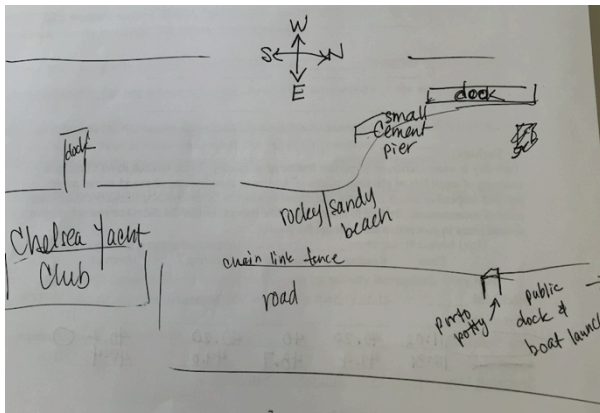 W
S N
E
dock
small
cement
pier
dock
rocky/sandy
beach
Chelsea Yacht
Club
chain link fence
road
porto
potty
public
dock &
boat launch